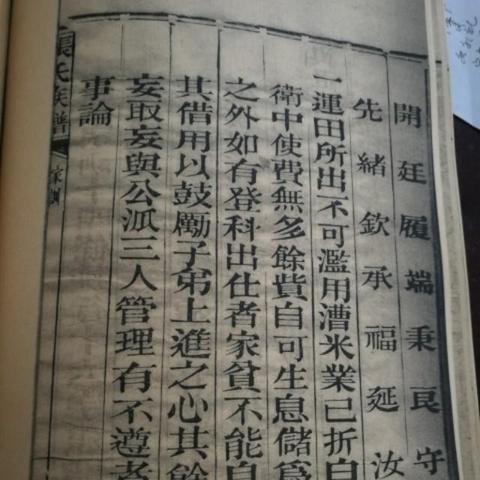 開廷履端秉良守
先緒欽承福延汝
一運田所出不可濫用漕米業已折白
衛中使費無多餘貲自可生息儲爲
之外如有登科出仕者家貧不能自
其借用以鼓勵子弟上進之心其餘
妄取妄與公派三人管理有不遵者
事論
氏族譜